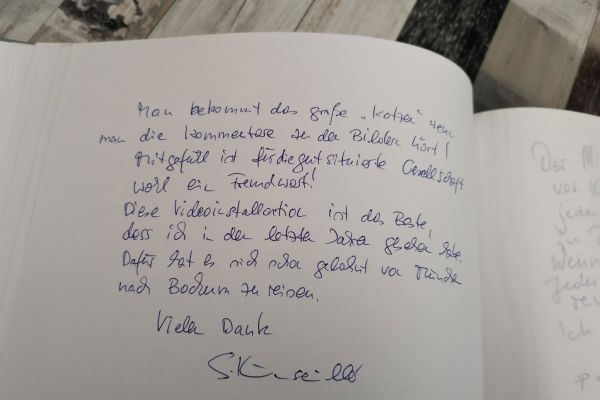 Man bekommt das große „Kotzen" wenn
man die Kommentare zu den Bildern hört!
Mitgefühl ist für die gut situierte Gesellschaft
wohl ein Fremdwort!
Diese Videoinstallation ist das Beste,
dass ich in den letzten Jahren gesehen habe.
Dafür hat es sich schon gelohnt von München
nach Bochum zu reisen.
Vielen Dank
Das
vor
jeden
zu
Wenn
Jeder
Ich